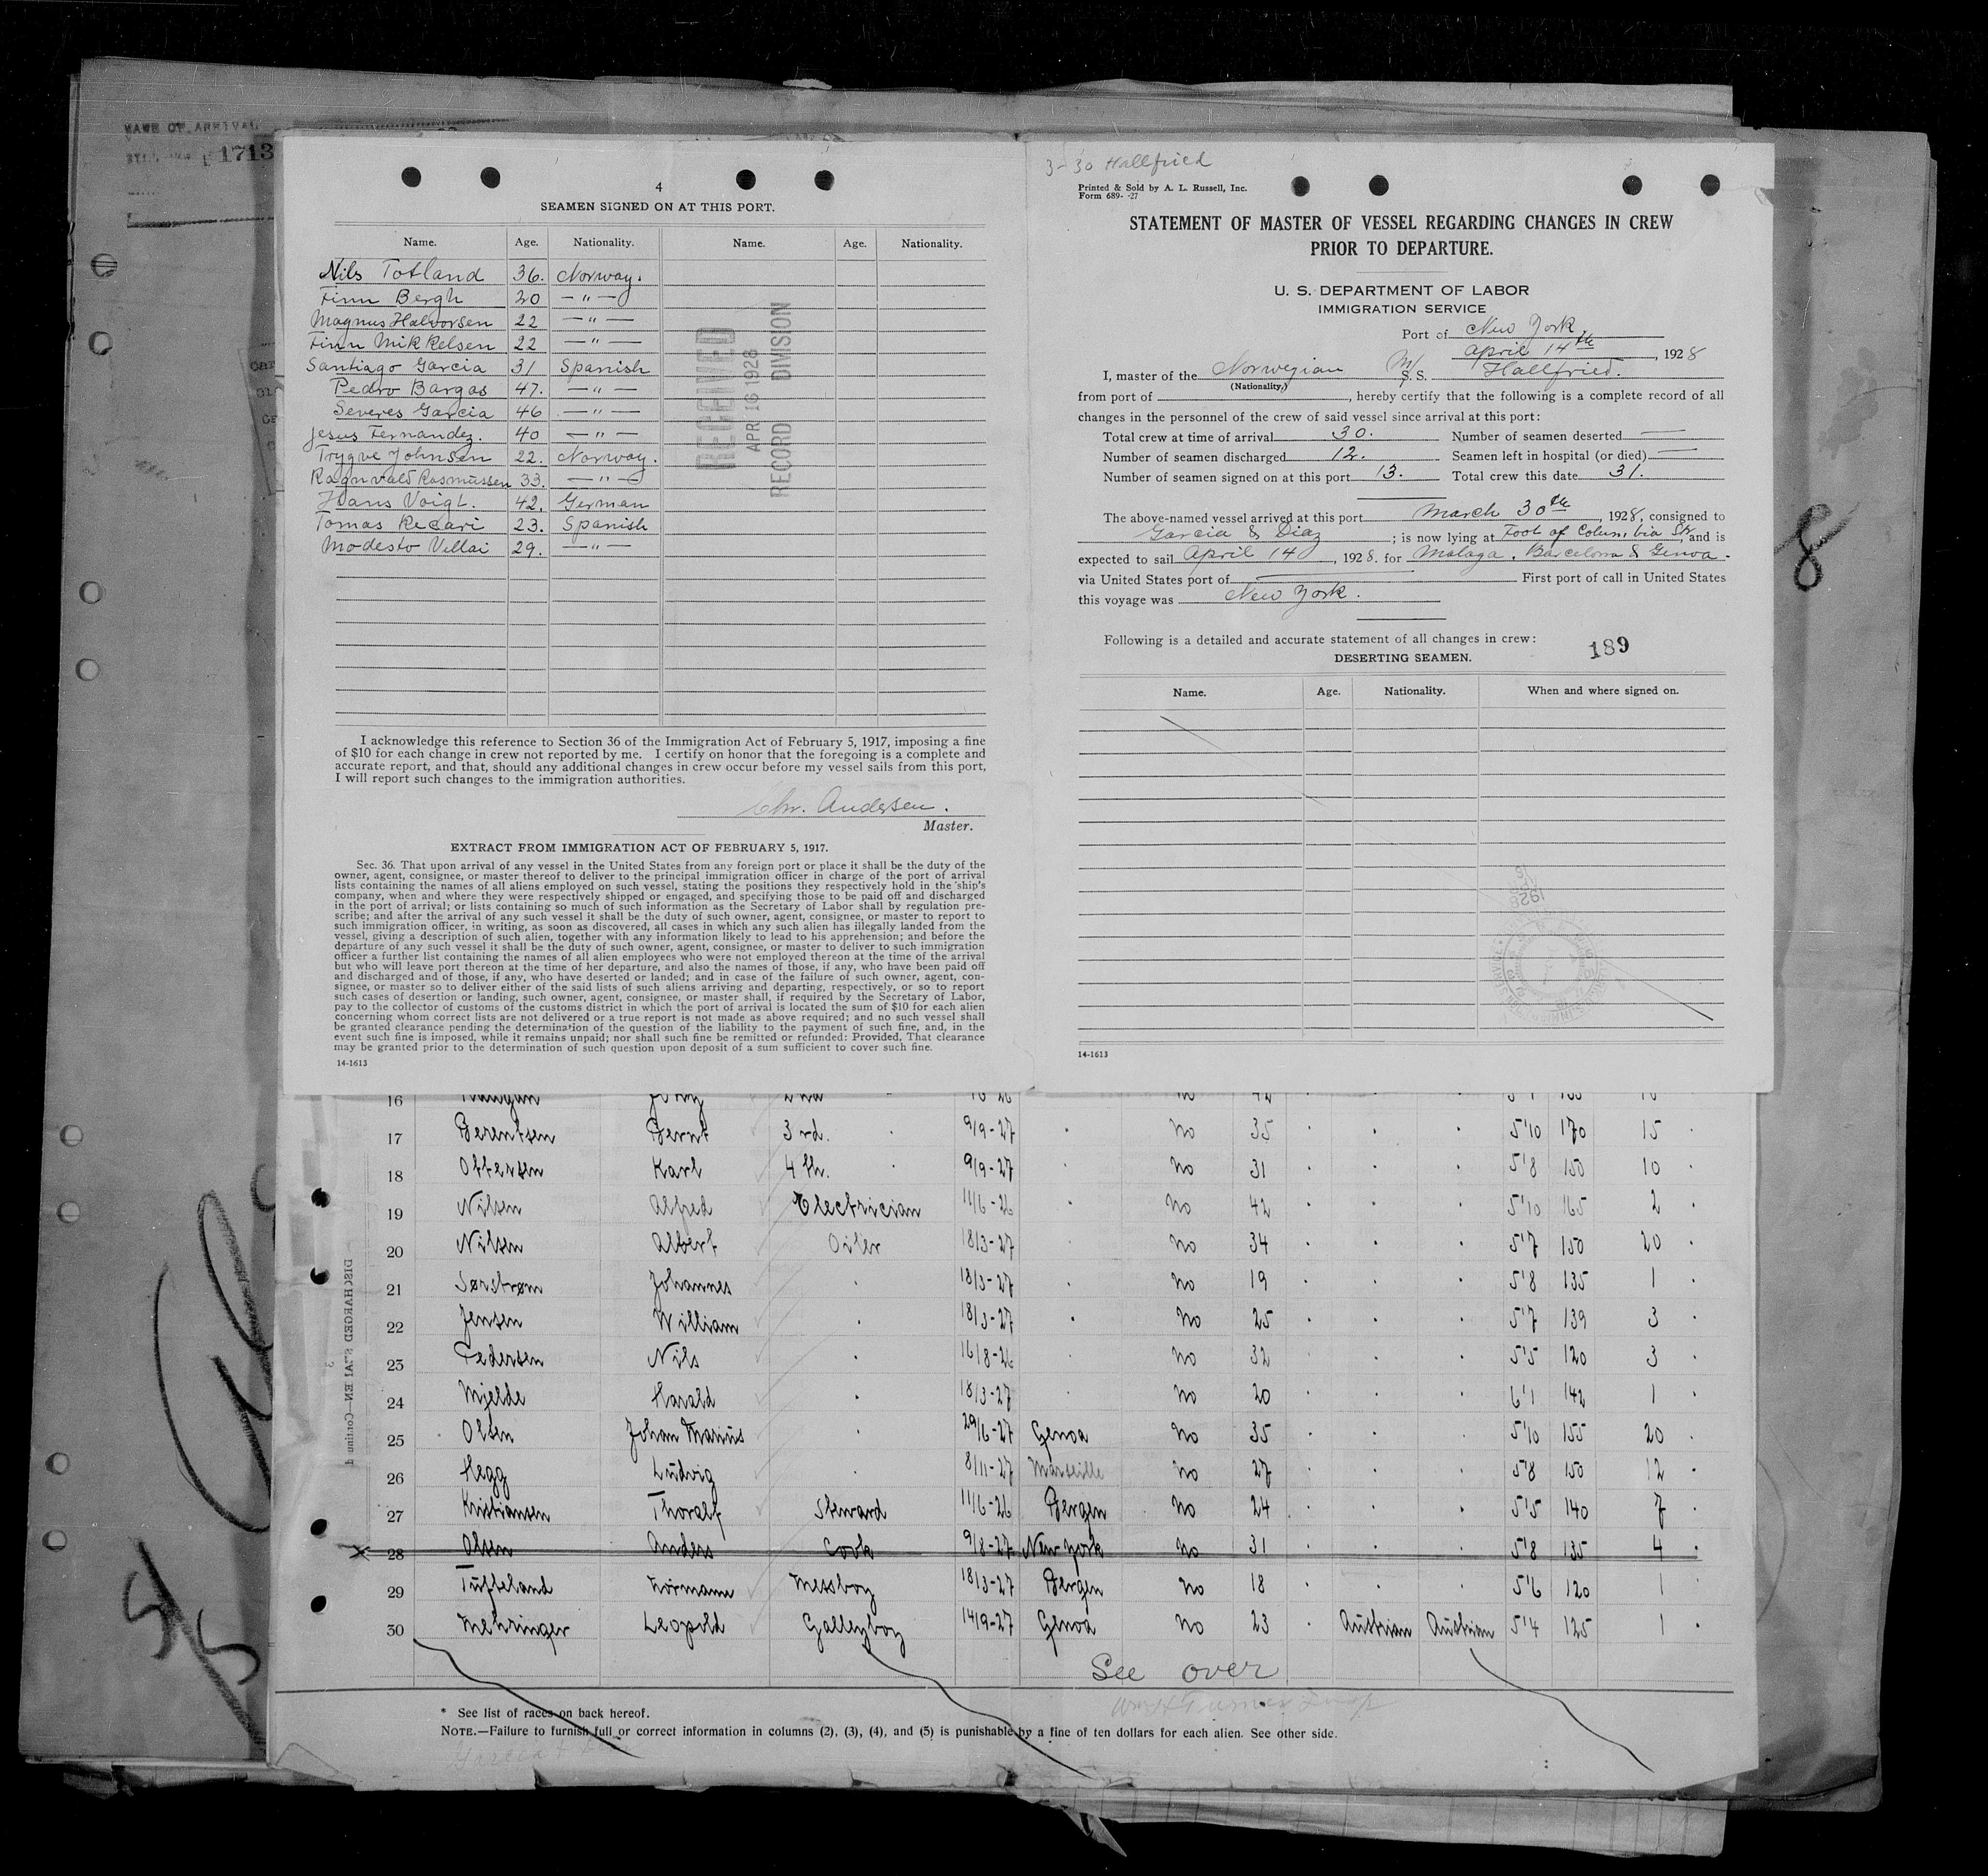 NAME OF ARRIVAL
1713
4
SEAMEN SIGNED ON AT THIS PORT.
Name. Age. Nationality. Name. Age. Nationality.
Nils Totland 36. Norway.
Finn Bergh 20 — " —
Magnus Halvorsen 22 — " —
Finn Mikkelsen 22 — " —
Santiago Garcia 31 Spanish
Pedro Bargas 47. — " —
Severes Garcia 46 — " —
Jesus Fernandez. 40 — " —
Trygve Johnsen 22. Norway.
Ragnvald Rasmussen 33. — " —
Hans Voigt. 42. German
Tomas Recari 23. Spanish
Modesto Villai 29. — " —
RECEIVED
APR 16 1928
RECORD DIVISION
I acknowledge this reference to Section 36 of the Immigration Act of February 5, 1917, imposing a fine
of $10 for each change in crew not reported by me. I certify on honor that the foregoing is a complete and
accurate report, and that, should any additional changes in crew occur before my vessel sails from this port,
I will report such changes to the immigration authorities.
Chr. Andersen.
Master.
EXTRACT FROM IMMIGRATION ACT OF FEBRUARY 5, 1917.
Sec. 36. That upon arrival of any vessel in the United States from any foreign port or place it shall be the duty of the
owner, agent, consignee, or master thereof to deliver to the principal immigration officer in charge of the port of arrival
lists containing the names of all aliens employed on such vessel, stating the positions they respectively hold in the ship's
company, when and where they were respectively shipped or engaged, and specifying those to be paid off and discharged
in the port of arrival; or lists containing so much of such information as the Secretary of Labor shall by regulation pre-
scribe; and after the arrival of any such vessel it shall be the duty of such owner, agent, consignee, or master to report to
such immigration officer, in writing, as soon as discovered, all cases in which any such alien has illegally landed from the
vessel, giving a description of such alien, together with any information likely to lead to his apprehension; and before the
departure of any such vessel it shall be the duty of such owner, agent, consignee, or master to deliver to such immigration
officer a further list containing the names of all alien employees who were not employed thereon at the time of the arrival
but who will leave port thereon at the time of her departure, and also the names of those, if any, who have been paid off
and discharged and of those, if any, who have deserted or landed; and in case of the failure of such owner, agent, con-
signee, or master so to deliver either of the said lists of such aliens arriving and departing, respectively, or so to report
such cases of desertion or landing, such owner, agent, consignee, or master shall, if required by the Secretary of Labor,
pay to the collector of customs of the customs district in which the port of arrival is located the sum of $10 for each alien
concerning whom correct lists are not delivered or a true report is not made as above required; and no such vessel shall
be granted clearance pending the determination of the question of the liability to the payment of such fine, and, in the
event such fine is imposed, while it remains unpaid; nor shall such fine be remitted or refunded: Provided, That clearance
may be granted prior to the determination of such question upon deposit of a sum sufficient to cover such fine.
14-1613
3-30 Hallfried
Printed & Sold by A. L. Russell, Inc.
Form 689- -27
STATEMENT OF MASTER OF VESSEL REGARDING CHANGES IN CREW
PRIOR TO DEPARTURE.
U. S. DEPARTMENT OF LABOR
IMMIGRATION SERVICE
Port of New York
April 14th, 1928
I, master of the Norwegian M/S. S. Hallfried.
(Nationality,)
from port of , hereby certify that the following is a complete record of all
changes in the personnel of the crew of said vessel since arrival at this port:
Total crew at time of arrival 30. Number of seamen deserted —
Number of seamen discharged 12. Seamen left in hospital (or died) —
Number of seamen signed on at this port 13. Total crew this date 31.
The above-named vessel arrived at this port March 30th, 1928, consigned to
Garcia & Diaz ; is now lying at Foot of Columbia Str, and is
expected to sail April 14, 1928. for Malaga, Barcelona & Genoa.
via United States port of — First port of call in United States
this voyage was New York.
Following is a detailed and accurate statement of all changes in crew:
189
DESERTING SEAMEN.
Name. Age. Nationality. When and where signed on.
1928
14-1613
8
16 2nd no 42
17 Berentsen Bernt 3 rd. 9/9-27 " No 35 " " " 5'10 170 15
18 Ottersen Karl 4 th. 9/9-27 " No 31 " " " 5'8 150 10
19 Nilsen Alfred Electrician 11/6-26 " No 42 " " " 5'10 165 2
20 Nilsen Albert Oiler 18/3-27 " No 34 " " " 5'7 150 20
21 Sørstrøm Johannes " 18/3-27 " No 19 " " " 5'8 135 1
22 Jensen William " 18/3-27 " No 25 " " " 5'7 139 3
23 Pedersen Nils " 16/8-26 " No 32 " " " 5'5 120 3
24 Mjelde Harald " 18/3-27 " No 20 " " " 6'1 142 1
25 Olsen Johan Marius " 29/6-27 Genoa No 35 " " " 5'10 155 20
26 Hegg Ludvig " 8/11-27 Marseille No 27 " " " 5'8 150 12
27 Kristiansen Thoralf Steward 11/6-26 Bergen No 24 " " " 5'5 140 7
28 Olsen Anders Cook 9/8-27 New York No 31 " " " 5'8 135 4
29 Tufteland Normann Messboy 18/3-27 Bergen No 18 " " " 5'6 120 1
30 Mehringer Leopold Galleyboy 14/9-27 Genoa No 23 " Austrian Austrian 5'4 125 1
See over
DISCHARGED SEAMEN—Continued
3
* See list of races on back hereof.
NOTE.—Failure to furnish full or correct information in columns (2), (3), (4), and (5) is punishable by a fine of ten dollars for each alien. See other side.